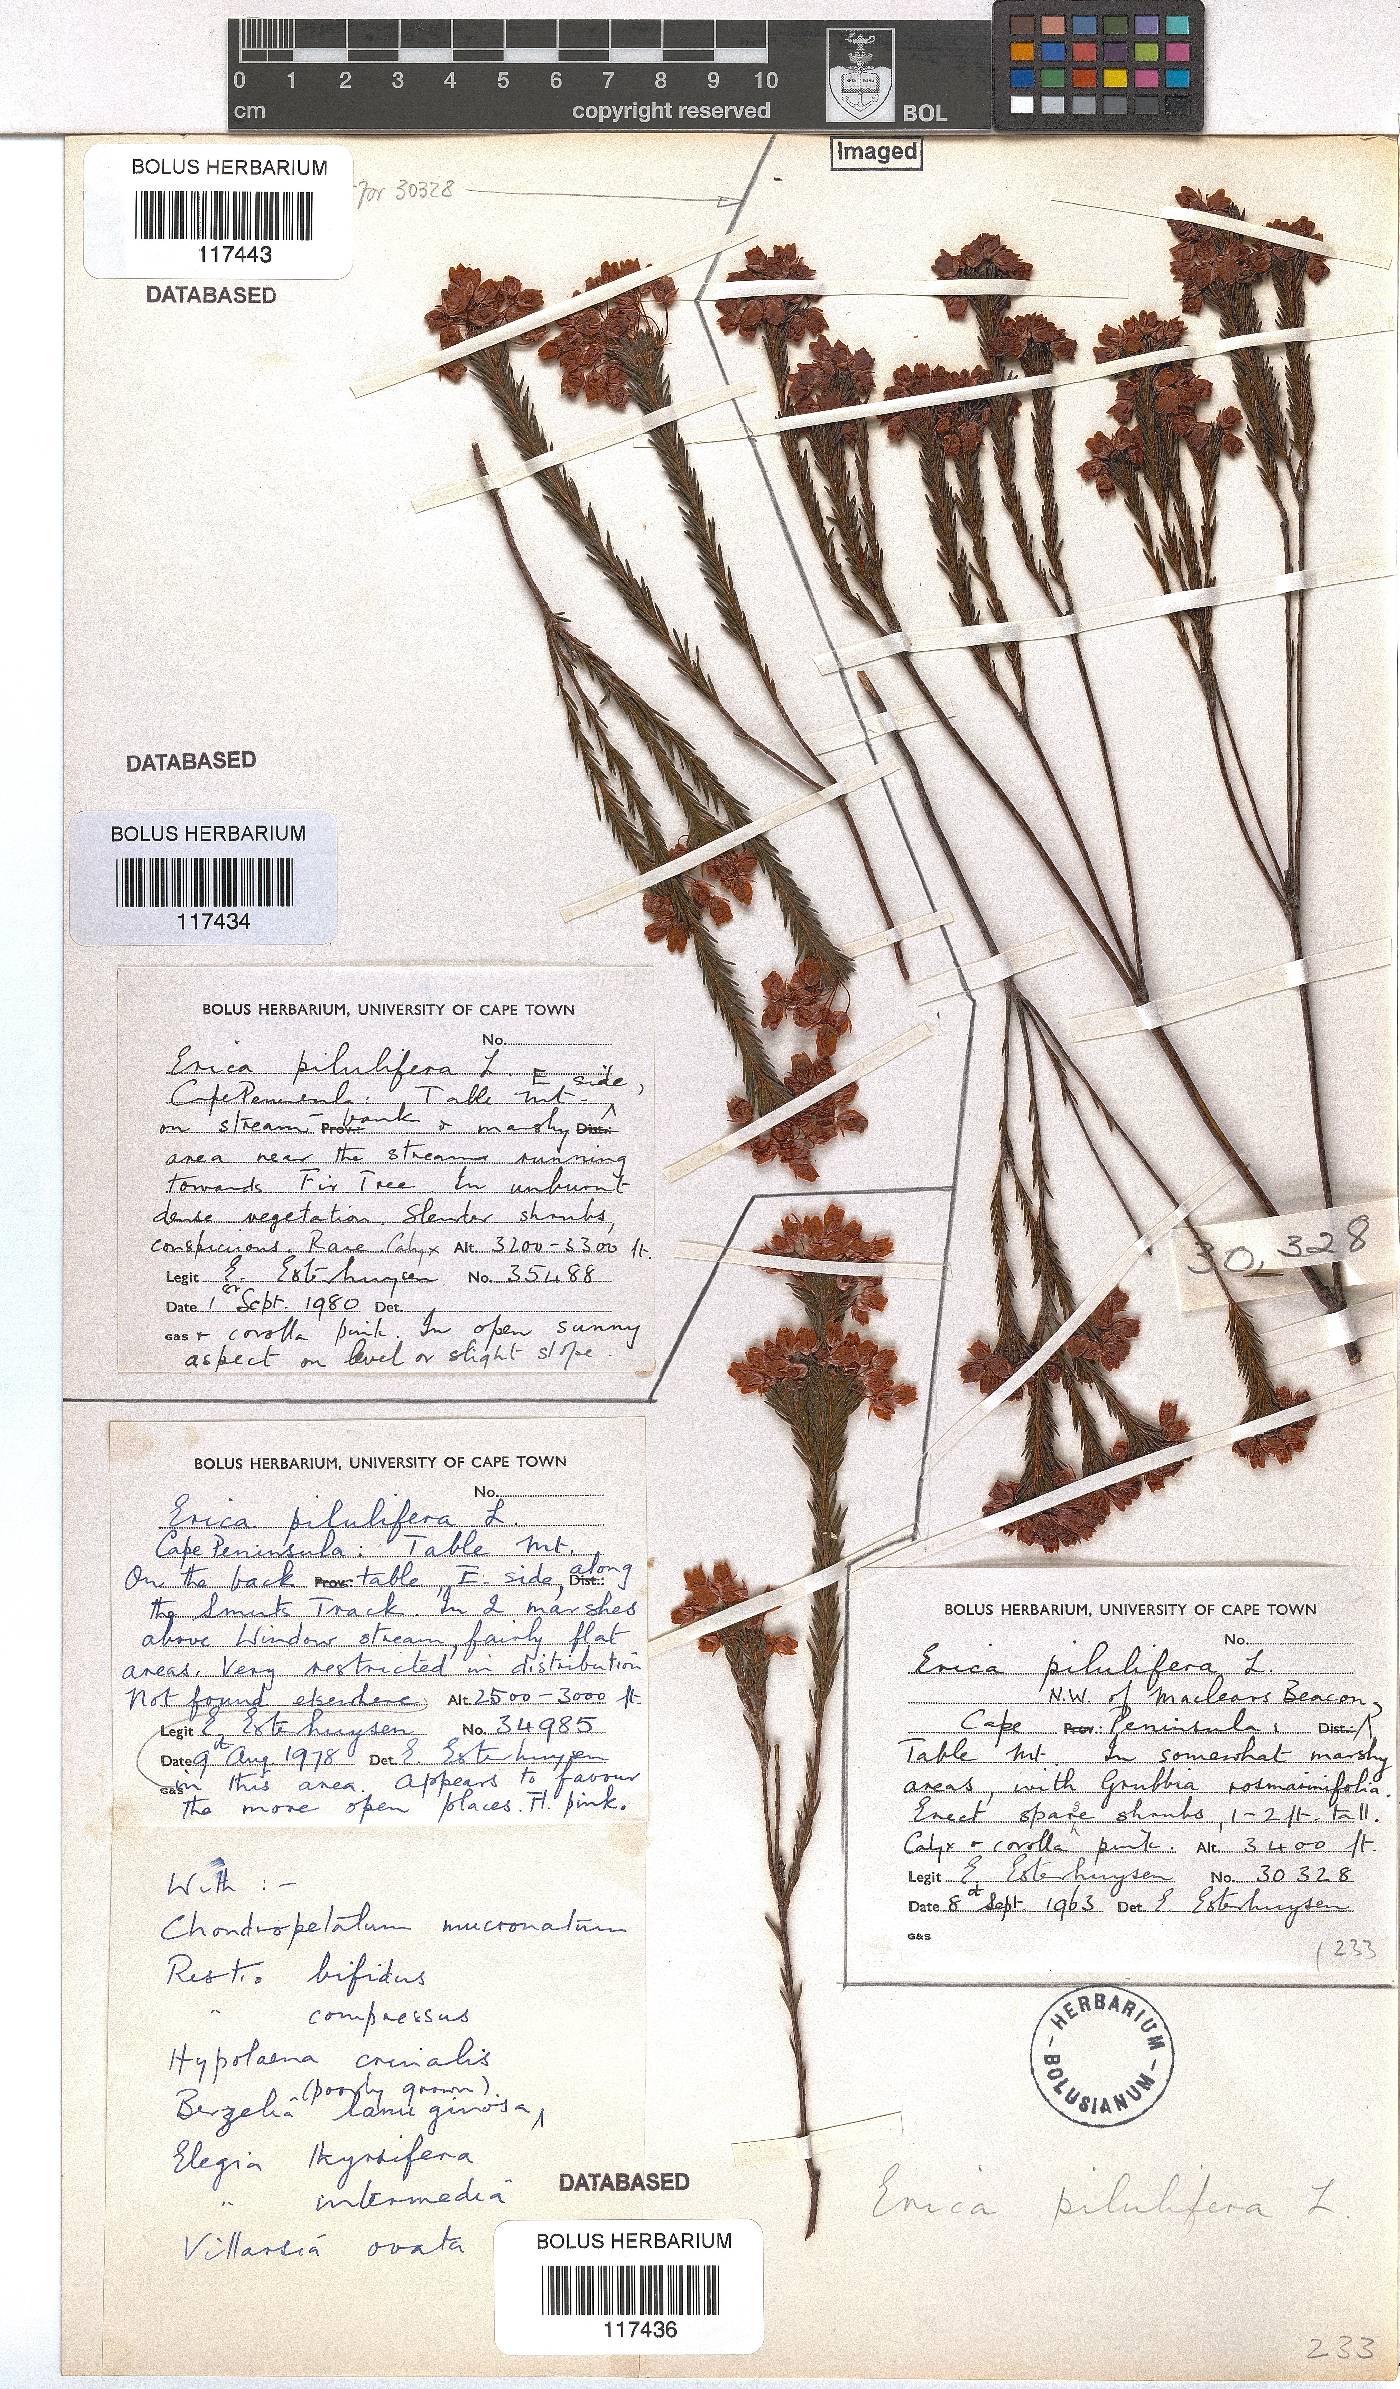 0 1 2 3 4 5 6 7 8 9 10
cm
copyright reserved
BOL
Imaged
BOLUS HERBARIUM
117443
for 30328
DATABASED
DATABASED
BOLUS HERBARIUM
117434
BOLUS HERBARIUM, UNIVERSITY OF CAPE TOWN
No.
Erica pilulifera L.
Cape Peninsula: Table Mt. E side,
on stream Prov.: bank & marshy Dist.:
area near the stream running
towards Fir Tree In unburnt
dense vegetation. Slender shrubs,
conspicuous. Rare Calyx Alt. 3200-3300 ft.
Legit E. Esterhuysen No. 35488
Date 1st Sept. 1980 Det.
G&S + corolla pink. In open sunny
aspect on level or slight slope.
BOLUS HERBARIUM, UNIVERSITY OF CAPE TOWN
No.
Erica pilulifera L.
Cape Peninsula: Table Mt.
On the back Prov.: table, E. side, along Dist.:
the Smuts Track. In 2 marshes
above Window stream, fairly flat
areas. Very restricted in distribution
Not found elsewhere Alt. 2500-3000 ft
Legit E. Esterhuysen No. 34985
Date 9th Aug 1978 Det. E. Esterhuysen
G&S in this area. Appears to favour
the more open places. Fl. pink.
With :-
Chondropetalum mucronatum
Restio bifidus
" compressus
Hypolaena crinalis
Berzelia lanuginosa (poorly grown).
Elegia thyrsifera
" intermedia
Villarsia ovata
DATABASED
BOLUS HERBARIUM
117436
30,328
BOLUS HERBARIUM, UNIVERSITY OF CAPE TOWN
No.
Erica pilulifera L.
N.W. of Maclears Beacon,
Cape Prov.: Peninsula: Dist.:
Table Mt. In somewhat marshy
areas, with Grubbia rosmarinifolia.
Erect sparse shrubs, 1-2 ft. tall.
Calyx & corolla pink. Alt. 3400 ft.
Legit E. Esterhuysen No. 30328
Date 8th Sept 1963 Det E Esterhuysen
G&S
233
HERBARIUM
BOLUSIANUM
Erica pilulifera L.
233